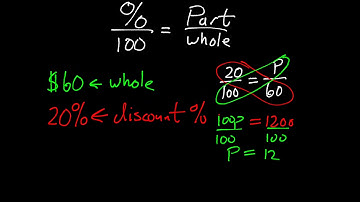 %/100 = Part/whole
$60 ← whole
20% ← discount %
20/100 = P/60
100P/100 = 1200/100
P = 12